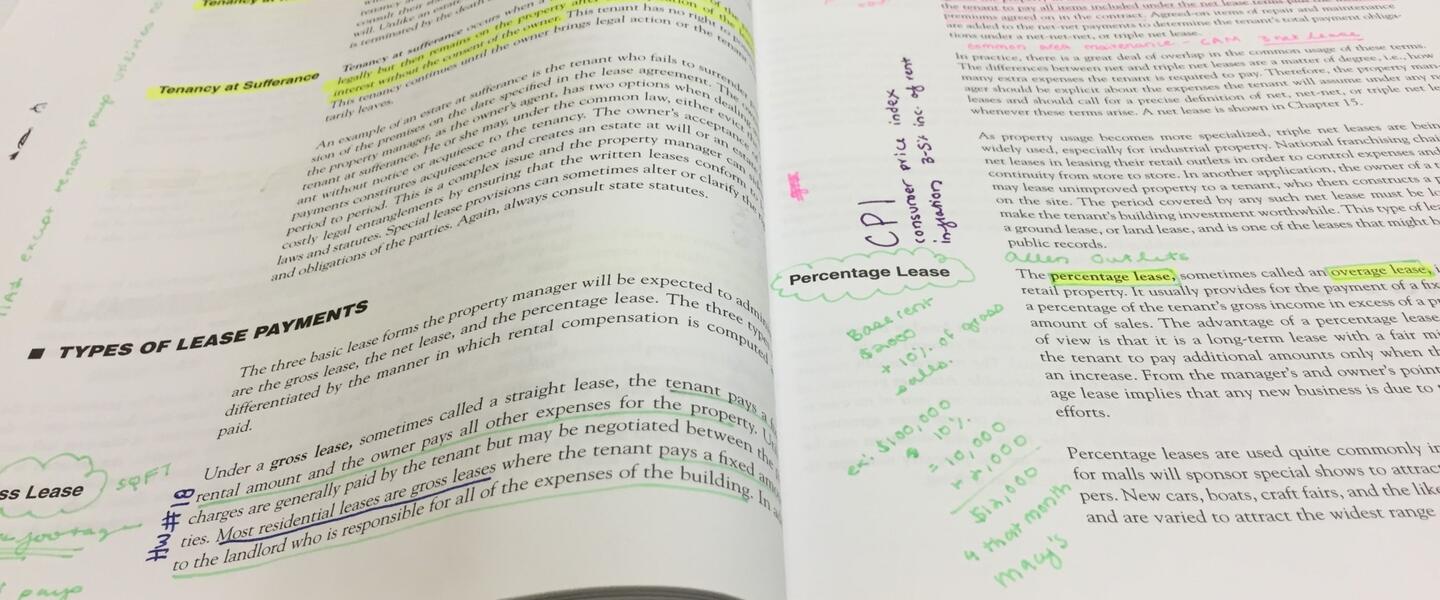 Tenancy at Sufferance
Tenancy at sufferance occurs when a
legally but then remains on the property after
interest without the consent of the owner. This tenant has no right to
This tenancy continues until the owner brings legal action or the tenant
tarily leaves.
An example of an estate at sufferance is the tenant who fails to surrender
sion of the premises on the date specified in the lease agreement. The
the property manager, as the owner's agent, has two options when dealing
tenant at sufferance. He or she may, under the common law, either evict
ant without notice or acquiesce to the tenancy. The owner's acceptance
payments constitutes acquiescence and creates an estate at will or an
period to period. This is a complex issue and the property manager can
costly legal entanglements by ensuring that the written leases conform
laws and statutes. Special lease provisions can sometimes alter or clarify the
and obligations of the parties. Again, always consult state statutes.
■ TYPES OF LEASE PAYMENTS
The three basic lease forms the property manager will be expected to
are the gross lease, the net lease, and the percentage lease. The three
differentiated by the manner in which rental compensation is computed
paid.
ss Lease
SQFT
HW#18
Under a gross lease, sometimes called a straight lease, the tenant pays a
rental amount and the owner pays all other expenses for the property.
charges are generally paid by the tenant but may be negotiated between the
ties. Most residential leases are gross leases where the tenant pays a fixed
to the landlord who is responsible for all of the expenses of the building. In
pays
the tenant to pay all items included under the net lease
premiums agreed on in the contract. Agreed-on items of repair and maintenance
are added to the net-net payments to determine the tenant's total payment obliga-
tions under a net-net-net, or triple net lease.
common area maintenance - CAM 3 net lease
In practice, there is a great deal of overlap in the common usage of these terms.
The differences between net and triple net leases are a matter of degree, i.e., how
many extra expenses the tenant is required to pay. Therefore, the property man-
ager should be explicit about the expenses the tenant will assume under any
leases and should call for a precise definition of net, net-net, or triple net
whenever these terms arise. A net lease is shown in Chapter 15.
CPI
consumer price index
inflation 3-5% inc. of rent
As property usage becomes more specialized, triple net leases are being
widely used, especially for industrial property. National franchising
net leases in leasing their retail outlets in order to control expenses and
continuity from store to store. In another application, the owner of a
may lease unimproved property to a tenant, who then constructs a
on the site. The period covered by any such net lease must be
make the tenant's building investment worthwhile. This type of
a ground lease, or land lease, and is one of the leases that might
public records.
allen outlets
Percentage Lease
The percentage lease, sometimes called an overage lease,
retail property. It usually provides for the payment of a
a percentage of the tenant's gross income in excess of a
amount of sales. The advantage of a percentage lease
of view is that it is a long-term lease with a fair
the tenant to pay additional amounts only when
an increase. From the manager's and owner's point
age lease implies that any new business is due to
efforts.
Base rent
$2000
+ 10% of gross
sales.
ex: $100,000
10%
= 10,000
+ 2,000
$12,000
4 that month
macy's
Percentage leases are used quite commonly
for malls will sponsor special shows to attract
pers. New cars, boats, craft fairs, and the like
and are varied to attract the widest range